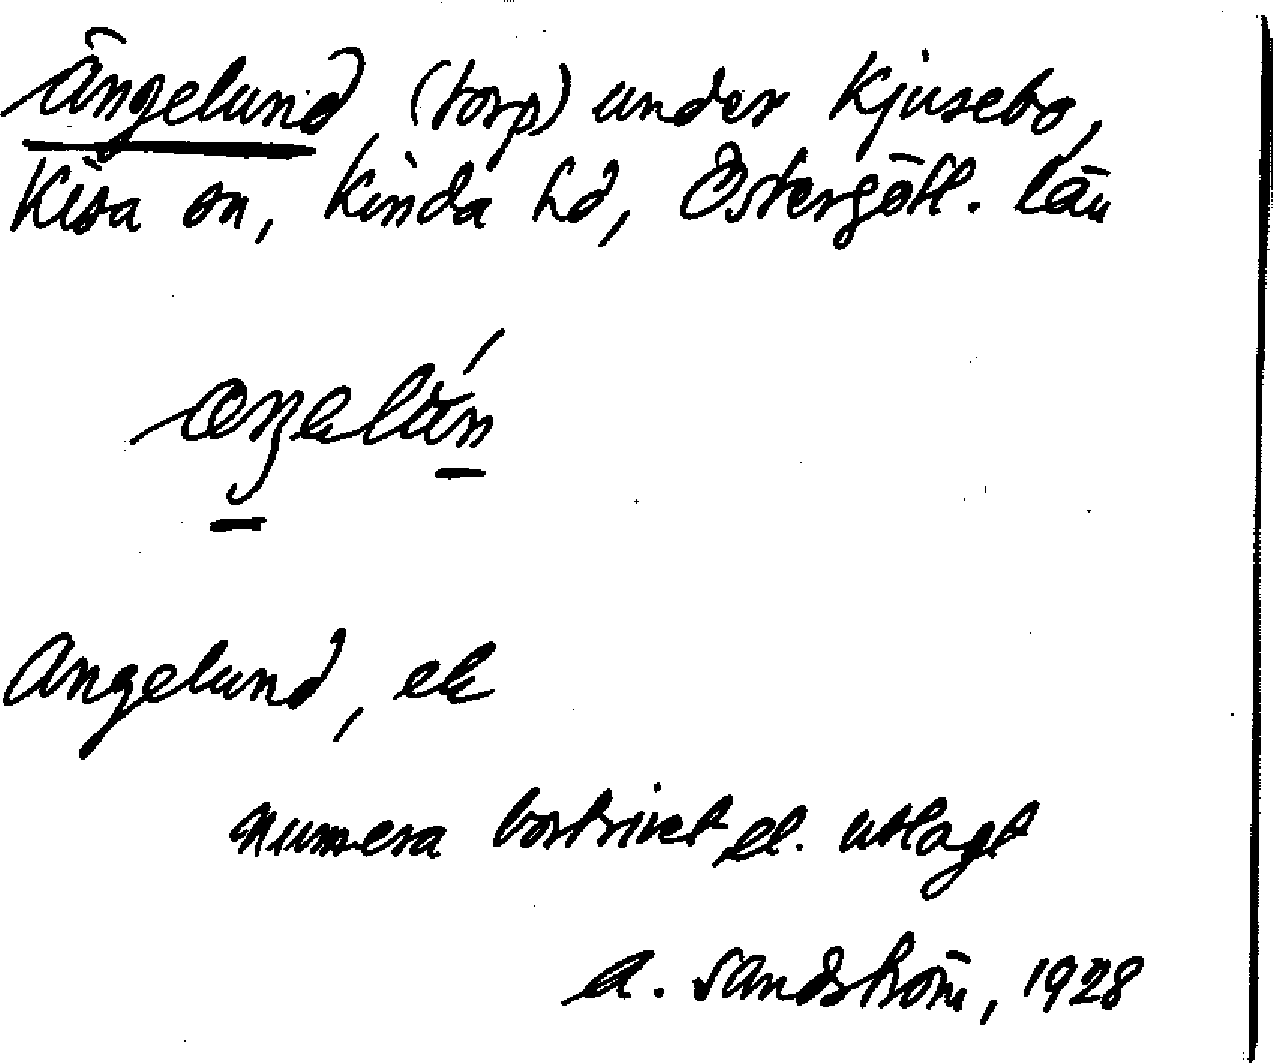 Ängelund, (torp) under Kjusebo,
Kisa sn, Kinda hd, Östergötl. län
Ängelund, ek
numera bortrivet el. utlagt
A. Sandström, 1928